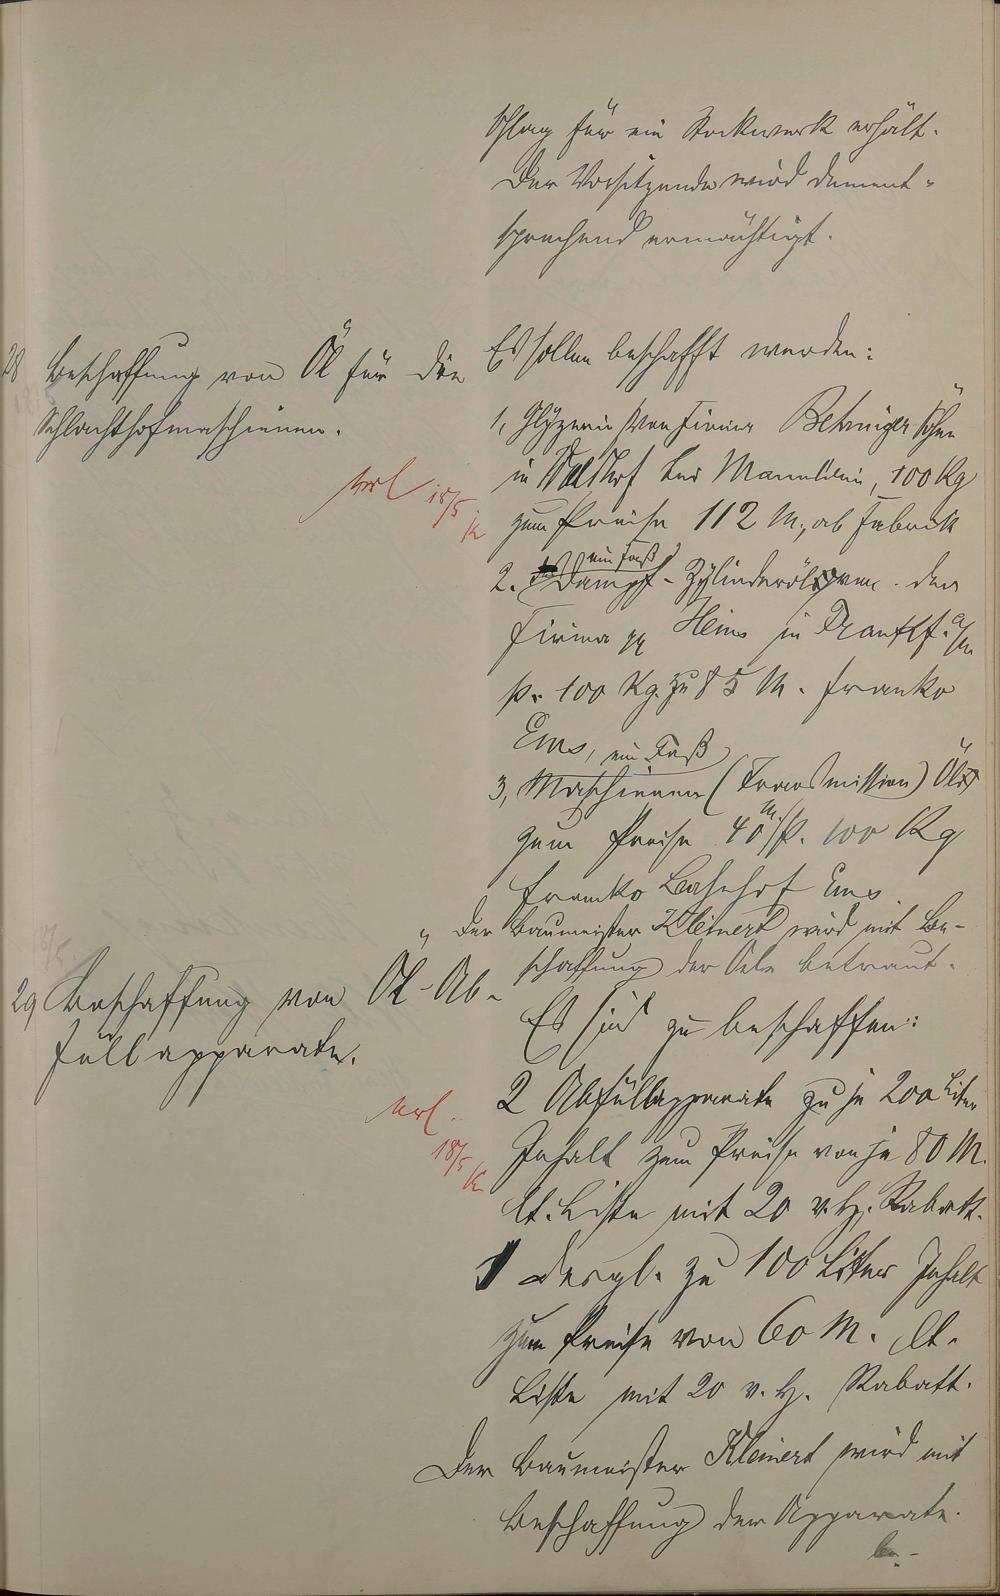 schlag für ein Stockwerk erhält.
Der Vorsitzende wird dement-
sprechend ermächtigt.
28 Beschaffung von Öl für die
Schlachthofmaschinen.
erl 18/5
K
Es sollen beschafft werden:
1, Glyzerin von Firma Söhne
in Waldhof bei Mannheim, 100 Kg
zum Preise 112 M, ab Fabrik
2. ein Faß Dampf-Zylinderöl von der
Firma Heins in Frankf. a/m
p. 100 Kg. zu 85 M. franko
Ems, ein Faß
3, Maschinen (Transmission) Öl
zum Preise 40 M./p. 100 Kg
franko Bahnhof Ems
" Der Baumeister Kleinert wird mit Be-
schaffung der Oele betraut.
29 Beschaffung von Öl-Ab-
füllapparate.
erl.
18/5
K
Es sind zu beschaffen:
2 Abfüllapparate zu je 200 Liter
Inhalt zum Preise von je 80 M.
lt. Liste mit 20 v. H. Rabatt.
1 desgl. zu 100 Liter Inhalt
zum Preise von 60 M. lt.
Liste mit 20 v. H. Rabatt.
Der Baumeister Kleinert wird mit
Beschaffung der Apparate
be-